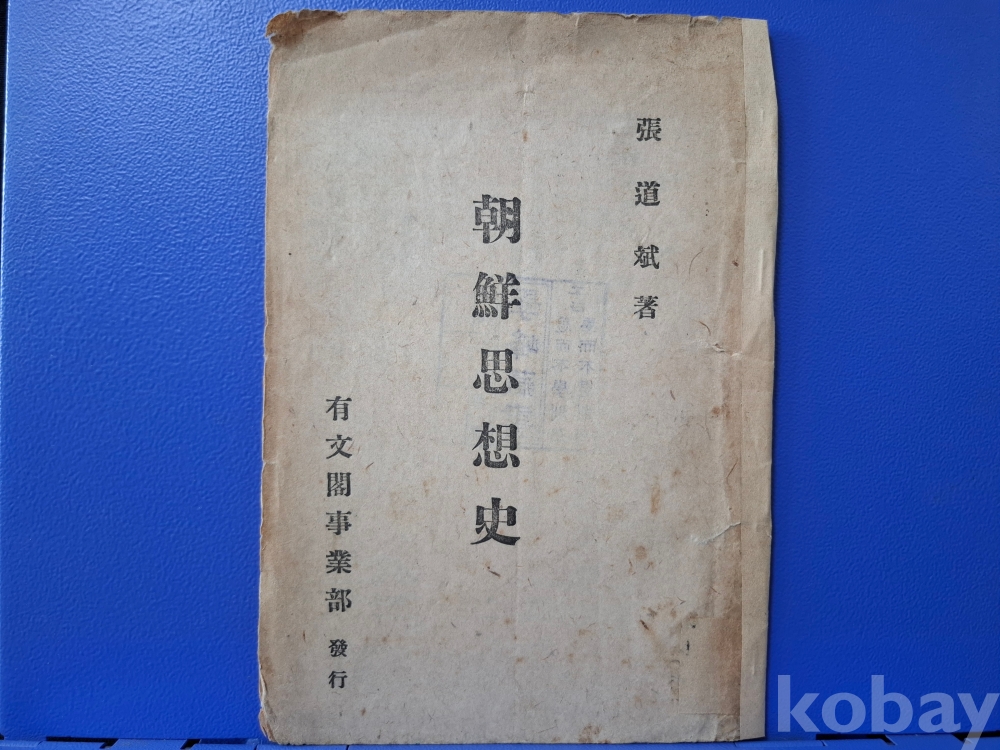 張道斌著
朝鮮思想史
有文閣事業部 發行
kobay